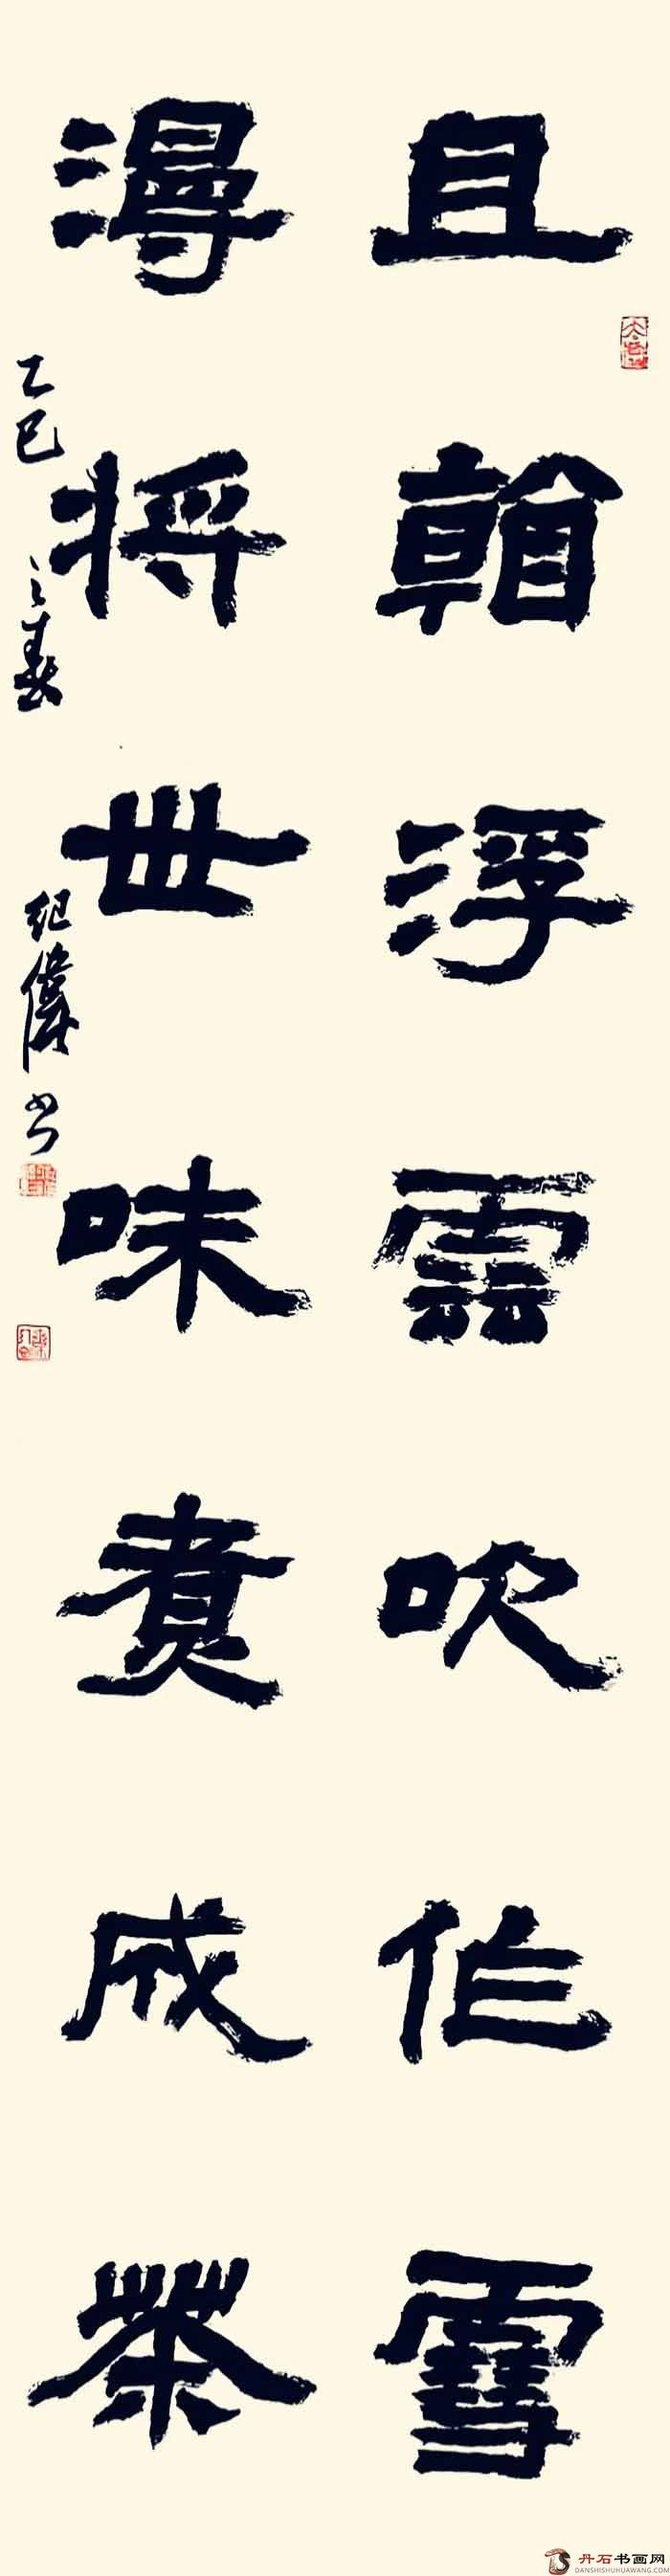 且浮雲吹作雪
得將世味煮成茶
乙巳之春 紀偉书
丹石书画网
DANSHISHUHUAWANG.COM